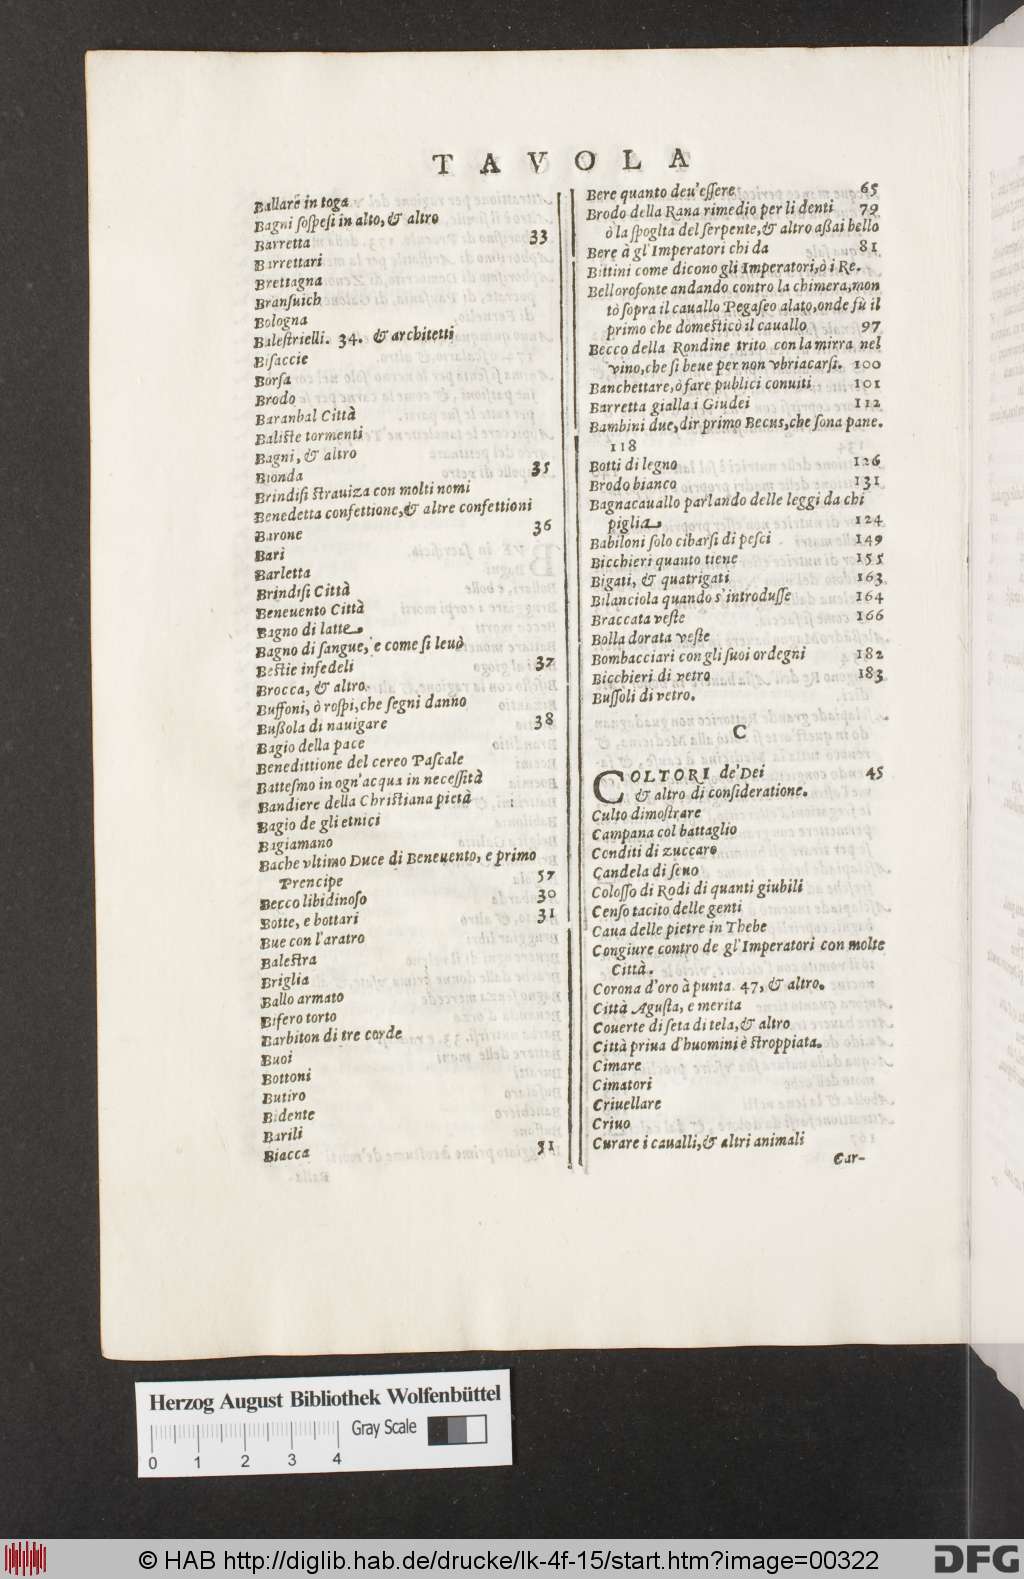 TAVOLA
Ballare in toga
Bagni ſoſpeſi in alto, & altro
Barretta 33
Barrettari
Brettagna
Branſuich
Bologna
Baleſtrielli. 34. & architetti
Biſaccie
Borſa
Brodo
Baranbal Città
Baliſte tormenti
Bagni, & altro
Bionda 35
Brindiſi ſtrauiza con molti nomi
Benedetta confettione, & altre confettioni
Barone 36
Bari
Barletta
Brindiſi Città
Beneuento Città
Bagno di latte
Bagno di ſangue, e come ſi leuò
Beſtie infedeli 37
Brocca, & altro.
Buffoni, ò roſpi, che ſegni danno
Buſſola di nauigare 38
Bagio della pace
Benedittione del cereo Paſcale
Batteſmo in ogn'acqua in neceſſità
Bandiere della Chriſtiana pietà
Bagio de gli etnici
Bagiamano
Bache vltimo Duce di Beneuento, e primo
Prencipe 57
Becco libidinoſo 30
Botte, e bottari 31
Bue con l'aratro
Baleſtra
Briglia
Ballo armato
Bifero torto
Barbiton di tre corde
Buoi
Bottoni
Butiro
Bidente
Barili
Biacca 51
Bere quanto deu'eſſere 65
Brodo della Rana rimedio per li denti 79
ò la ſpoglta del ſerpente, & altro aſſai bello
Bere à gl'Imperatori chi da 81
Bittini come dicono gli Imperatori, ò i Re.
Bellorofonte andando contro la chimera, mon
tò ſopra il cauallo Pegaſeo alato, onde fù il
primo che domeſticò il cauallo 97
Becco della Rondine trito con la mirra nel
vino, che ſi beue per non vbriacarſi. 100
Banchettare, ò fare publici conuiti 101
Barretta gialla i Giudei 112
Bambini due, dir primo Becus, che ſona pane.
118
Botti di legno 126
Brodo bianco 131
Bagnacauallo parlando delle leggi da chi
piglia 124
Babiloni ſolo cibarſi di peſci 149
Bicchieri quanto tiene 155
Bigati, & quatrigati 163
Bilanciola quando s'introduſſe 164
Braccata veſte 166
Bolla dorata veſte
Bombacciari con gli ſuoi ordegni 182
Bicchieri di vetro 183
Buſſoli di vetro.
C
COLTORI de'Dei 45
& altro di conſideratione.
Culto dimoſtrare
Campana col battaglio
Conditi di zuccaro
Candela di ſeuo
Coloſſo di Rodi di quanti giubili
Cenſo tacito delle genti
Caua delle pietre in Thebe
Congiure contro de gl'Imperatori con molte
Città.
Corona d'oro à punta 47, & altro.
Città Aguſta, e merita
Couerte di ſeta di tela, & altro
Città priua d'huomini è ſtroppiata.
Cimare
Cimatori
Criuellare
Criuo
Curare i caualli, & altri animali
Car-
Herzog August Bibliothek Wolfenbüttel
Gray Scale
0 1 2 3 4
© HAB http://diglib.hab.de/drucke/lk-4f-15/start.htm?image=00322
DFG